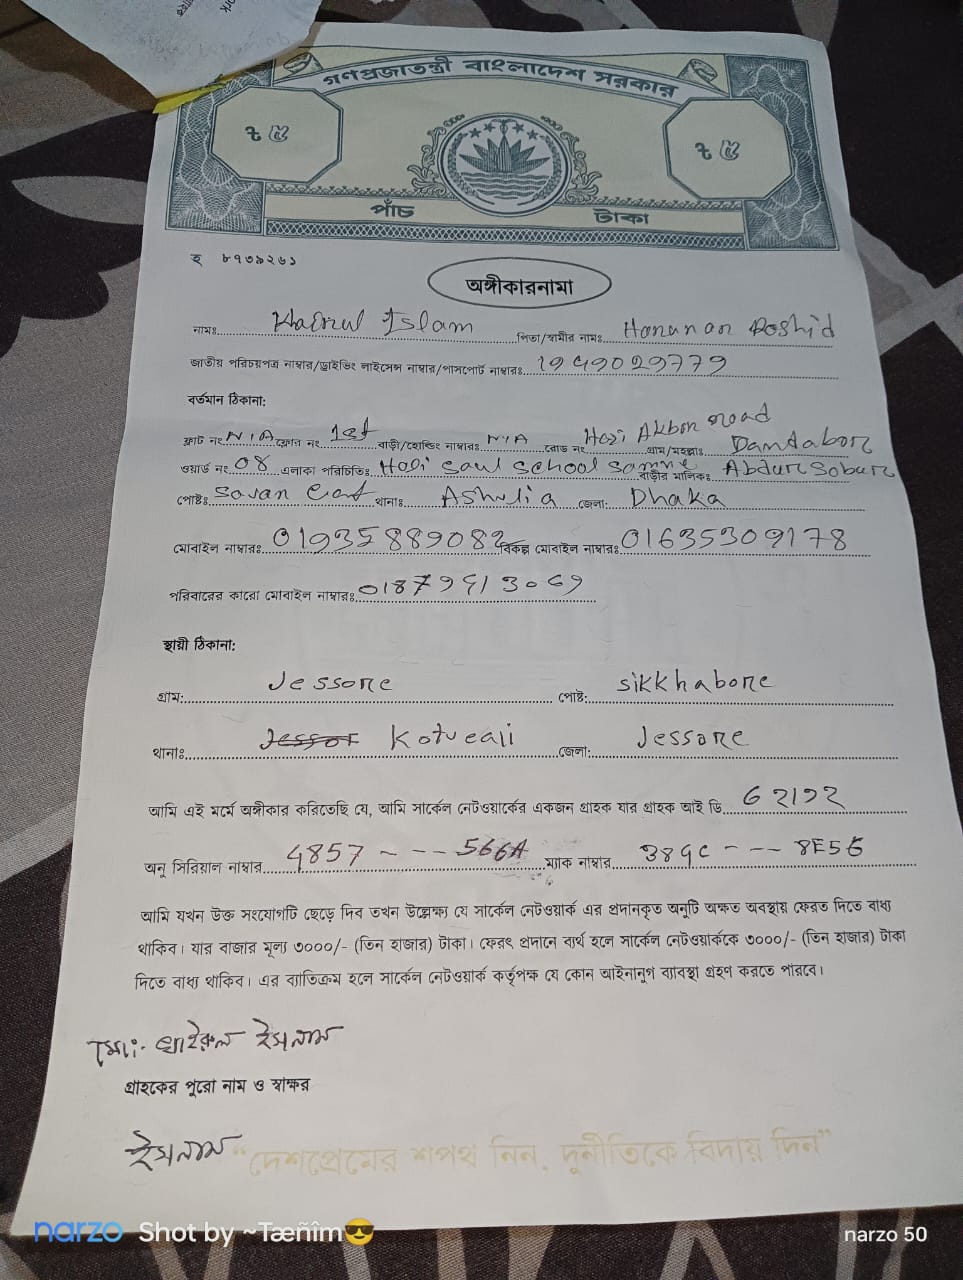 গণপ্রজাতন্ত্রী বাংলাদেশ সরকার
৳ ৫ ৳ ৫
পাঁচ টাকা
হ ৮৭৩৯২৬১
অঙ্গীকারনামা
নামঃ Hairul Islam পিতা/স্বামীর নামঃ Harunar Roshid
জাতীয় পরিচয়পত্র নাম্বার/ড্রাইভিং লাইসেন্স নাম্বার/পাসপোর্ট নাম্বারঃ
বর্তমান ঠিকানা:
ফ্লাট নং N/A ফ্লোর নং 1st বাড়ী/হোল্ডিং নাম্বারঃ N/A রোড নং Hazi Akbor road গ্রাম/মহল্লাঃ Dandabor
ওয়ার্ড নং 08 এলাকা পরিচিতিঃ school samne বাড়ীর মালিকঃ Abdur Sobur
পোষ্টঃ থানাঃ Ashulia জেলা: Dhaka
মোবাইল নাম্বারঃ 01935889082 বিকল্প মোবাইল নাম্বারঃ 01635309178
পরিবারের কারো মোবাইল নাম্বারঃ
স্থায়ী ঠিকানা:
গ্রাম: Jessore পোষ্ট: sikkhabore
থানাঃ Kotueali জেলা: Jessore
আমি এই মর্মে অঙ্গীকার করিতেছি যে, আমি সার্কেল নেটওয়ার্কের একজন গ্রাহক যার গ্রাহক আই ডি 62192
অনু সিরিয়াল নাম্বার 4857 - - - 566A ম্যাক নাম্বার 389C - - - 8E56
আমি যখন উক্ত সংযোগটি ছেড়ে দিব তখন উল্লেক্ষ্য যে সার্কেল নেটওয়ার্ক এর প্রদানকৃত অনুটি অক্ষত অবস্থায় ফেরত দিতে বাধ্য
থাকিব। যার বাজার মূল্য ৩০০০/- (তিন হাজার) টাকা। ফেরৎ প্রদানে ব্যর্থ হলে সার্কেল নেটওয়ার্ককে ৩০০০/- (তিন হাজার) টাকা
দিতে বাধ্য থাকিব। এর ব্যতিক্রম হলে সার্কেল নেটওয়ার্ক কর্তৃপক্ষ যে কোন আইনানুগ ব্যাবস্থা গ্রহণ করতে পারবে।
মোঃ খাইরুল ইসলাম
গ্রাহকের পুরো নাম ও স্বাক্ষর
ইসলাম
"দেশপ্রেমের শপথ নিন, দুর্নীতিকে বিদায় দিন"
narzo Shot by ~Tæñîm😎 narzo 50